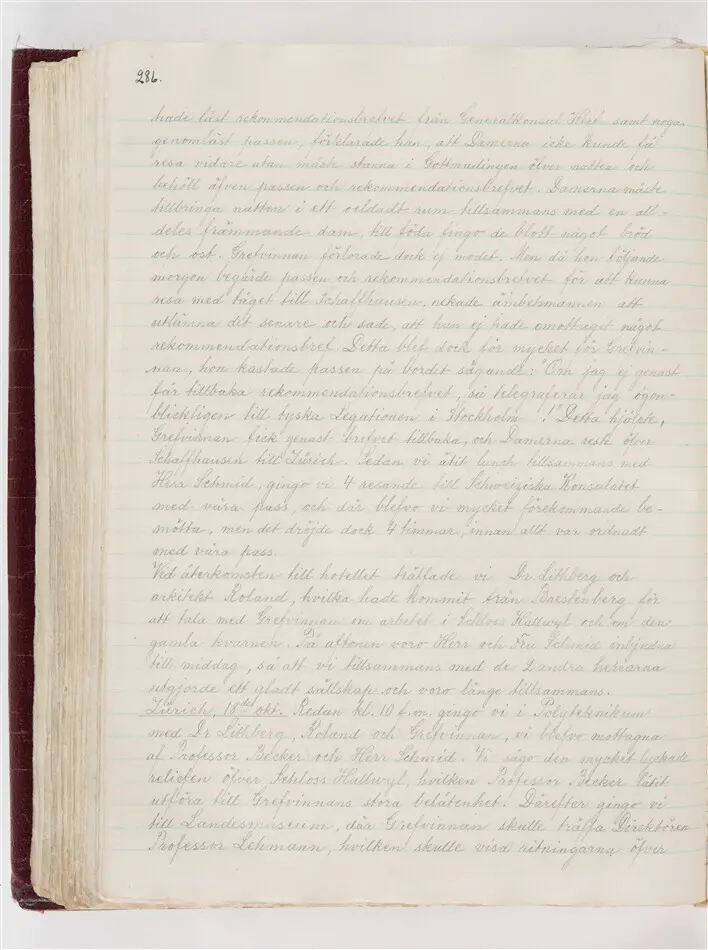 286.
hade läst rekommendationsbrefvet från Generalkonsul Herf samt noga
genomläst passen, förklarade han, att Damerna icke kunde få
resa vidare utan måste stanna i Gottmadingen öfver natten och
behöll äfven passen och rekommendationsbrefvet. Damerna måste
tillbringa natten i ett oeldadt rum tillsammans med en all-
deles främmande dam, till föda fingo de blott något bröd
och ost. Grefvinnan förlorade dock ej modet. Men då hon följande
morgon begärde passen och rekommendationsbrefvet för att kunna
resa med tåget till Schaffhausen, nekade ämbetsmannen att
utlämna det senare och sade, att han ej hade emottaget något
rekommendationsbref. Detta blef dock för mycket för Grefvin-
nan, hon kastade passen på bordet sägande: "Om jag ej genast
får tillbaka rekommendationsbrefvet, så telegraferar jag ögon-
blickligen till tyska Legationen i Stockholm!" Detta hjälpte,
Grefvinnan fick genast brefvet tillbaka, och Damerna reste öfver
Schaffhausen till Zürich. Sedan vi ätit lunch tillsammans med
Herr Schmid, gingo vi 4 resande till Schweiziska Konsulatet
med våra pass, och där blefvo vi mycket förekommande be-
mötta, men det dröjde dock 4 timmar, innan allt var ordnadt
med våra pass.
Vid återkomsten till hotellet träffade vi Dr Lithberg och
arkitekt Roland, hvilka hade kommit från Brestenberg för
att tala med Grefvinnan om arbetet i Schloss Hallwyl och om den
gamla kvarnen. På aftonen voro Herr och Fru Schmid inbjudna
till middag, så att vi tillsammans med de 2 andra herrarna
utgjorde ett gladt sällskap och voro länge tillsammans.
Zürich, 18de okt. Redan kl. 10 f.m. gingo vi i Polyteknikum
med Dr Lithberg, Roland och Grefvinnan, vi blefvo mottagna
af Professor Becker och Herr Schmid. Vi sågo den mycket lyckade
reliefen öfver Schloss Hallwyl, hvilken Professor Becker låtit
utföra till Grefvinnans stora belåtenhet. Därefter gingo vi
till Landesmuseum, där Grefvinnan skulle träffa Direktören
Professor Lehmann, hvilken skulle visa ritningarna öfver